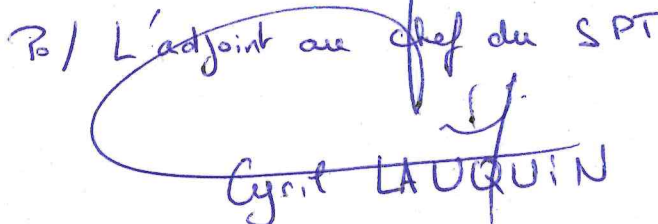 Po/ L'adjoint au chef du SPT
Cyril LAUQUIN